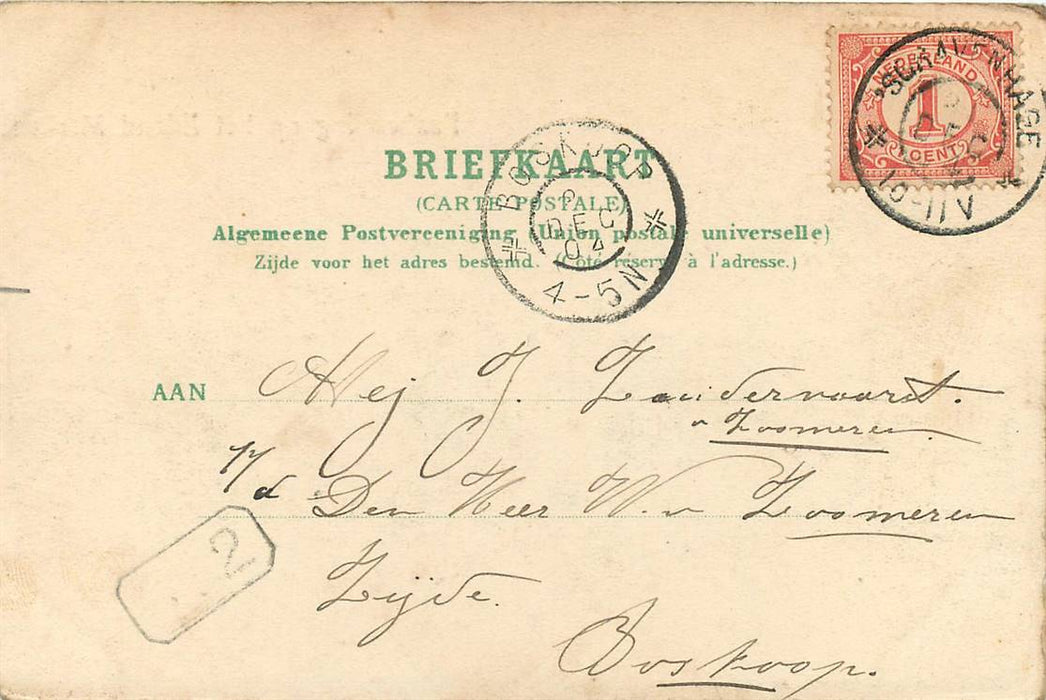 NEDERLAND
1
CENT
'SGRAVENHAGE
10-11V
BRIEFKAART
(CARTE POSTALE)
Algemeene Postvereeniging (Union postale universelle)
Zijde voor het adres bestemd. (Côté réservé à l'adresse.)
BOSKOOP
2
DEC
04
4-5N
AAN Mej J. Zandervaart.
v Zoomeren.
p/d Den Heer W. v Zoomeren
Zijde.
Boskoop.
2